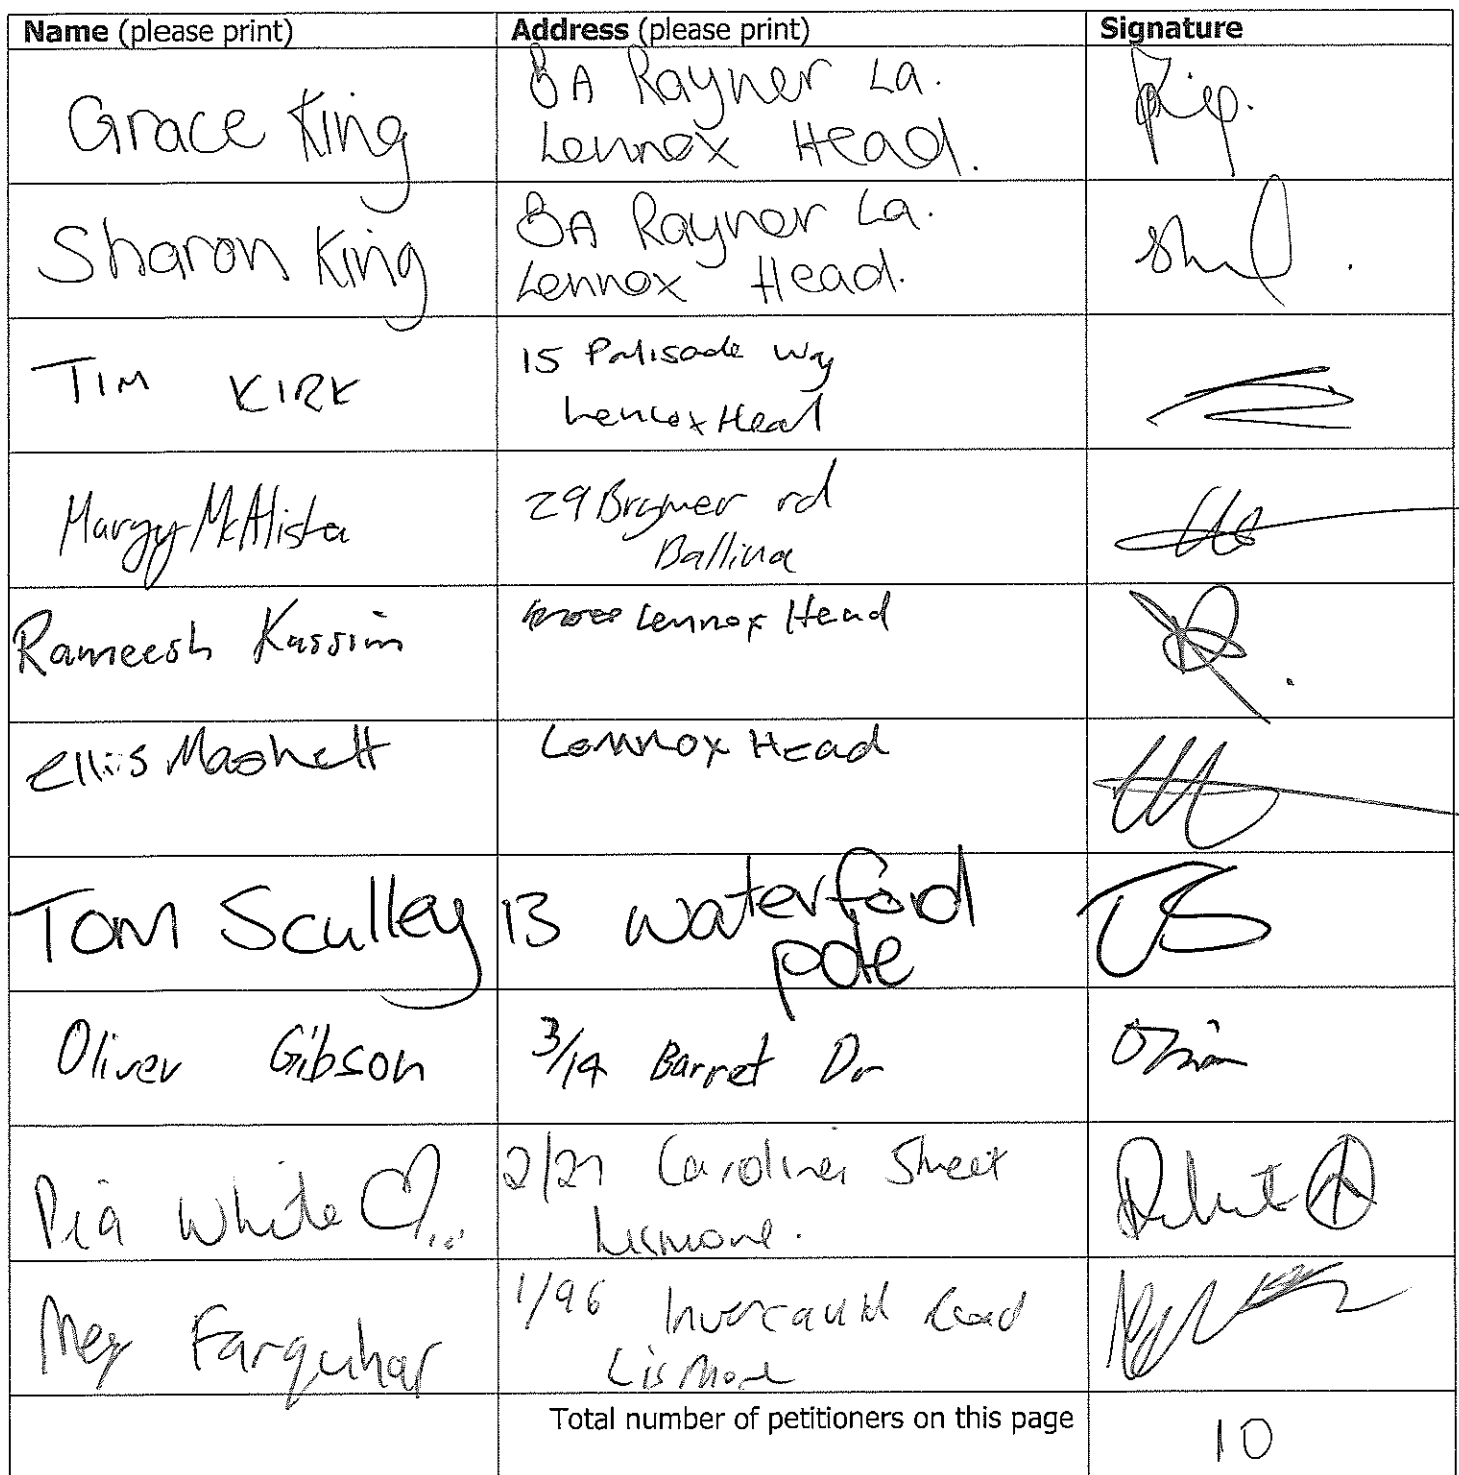 Name (please print) Address (please print) Signature
Grace King 8A Rayner La.
Lennox Head.
Sharon King 8A Rayner La.
Lennox Head.
TIM KIRK 15 Palisade Way
Lennox Head
Margy McAlista 29 Brymer rd
Ballina
Rameesh Kassim Lennox Head
Ellis Lennox Head
Tom Sculley 13 waterford
Oliver Gibson 3/14 Barret Dr
Pia White 2/27 Street
Lismore.
Meg Farquhar 1/96 Invercauld Road
Lismore
Total number of petitioners on this page 10